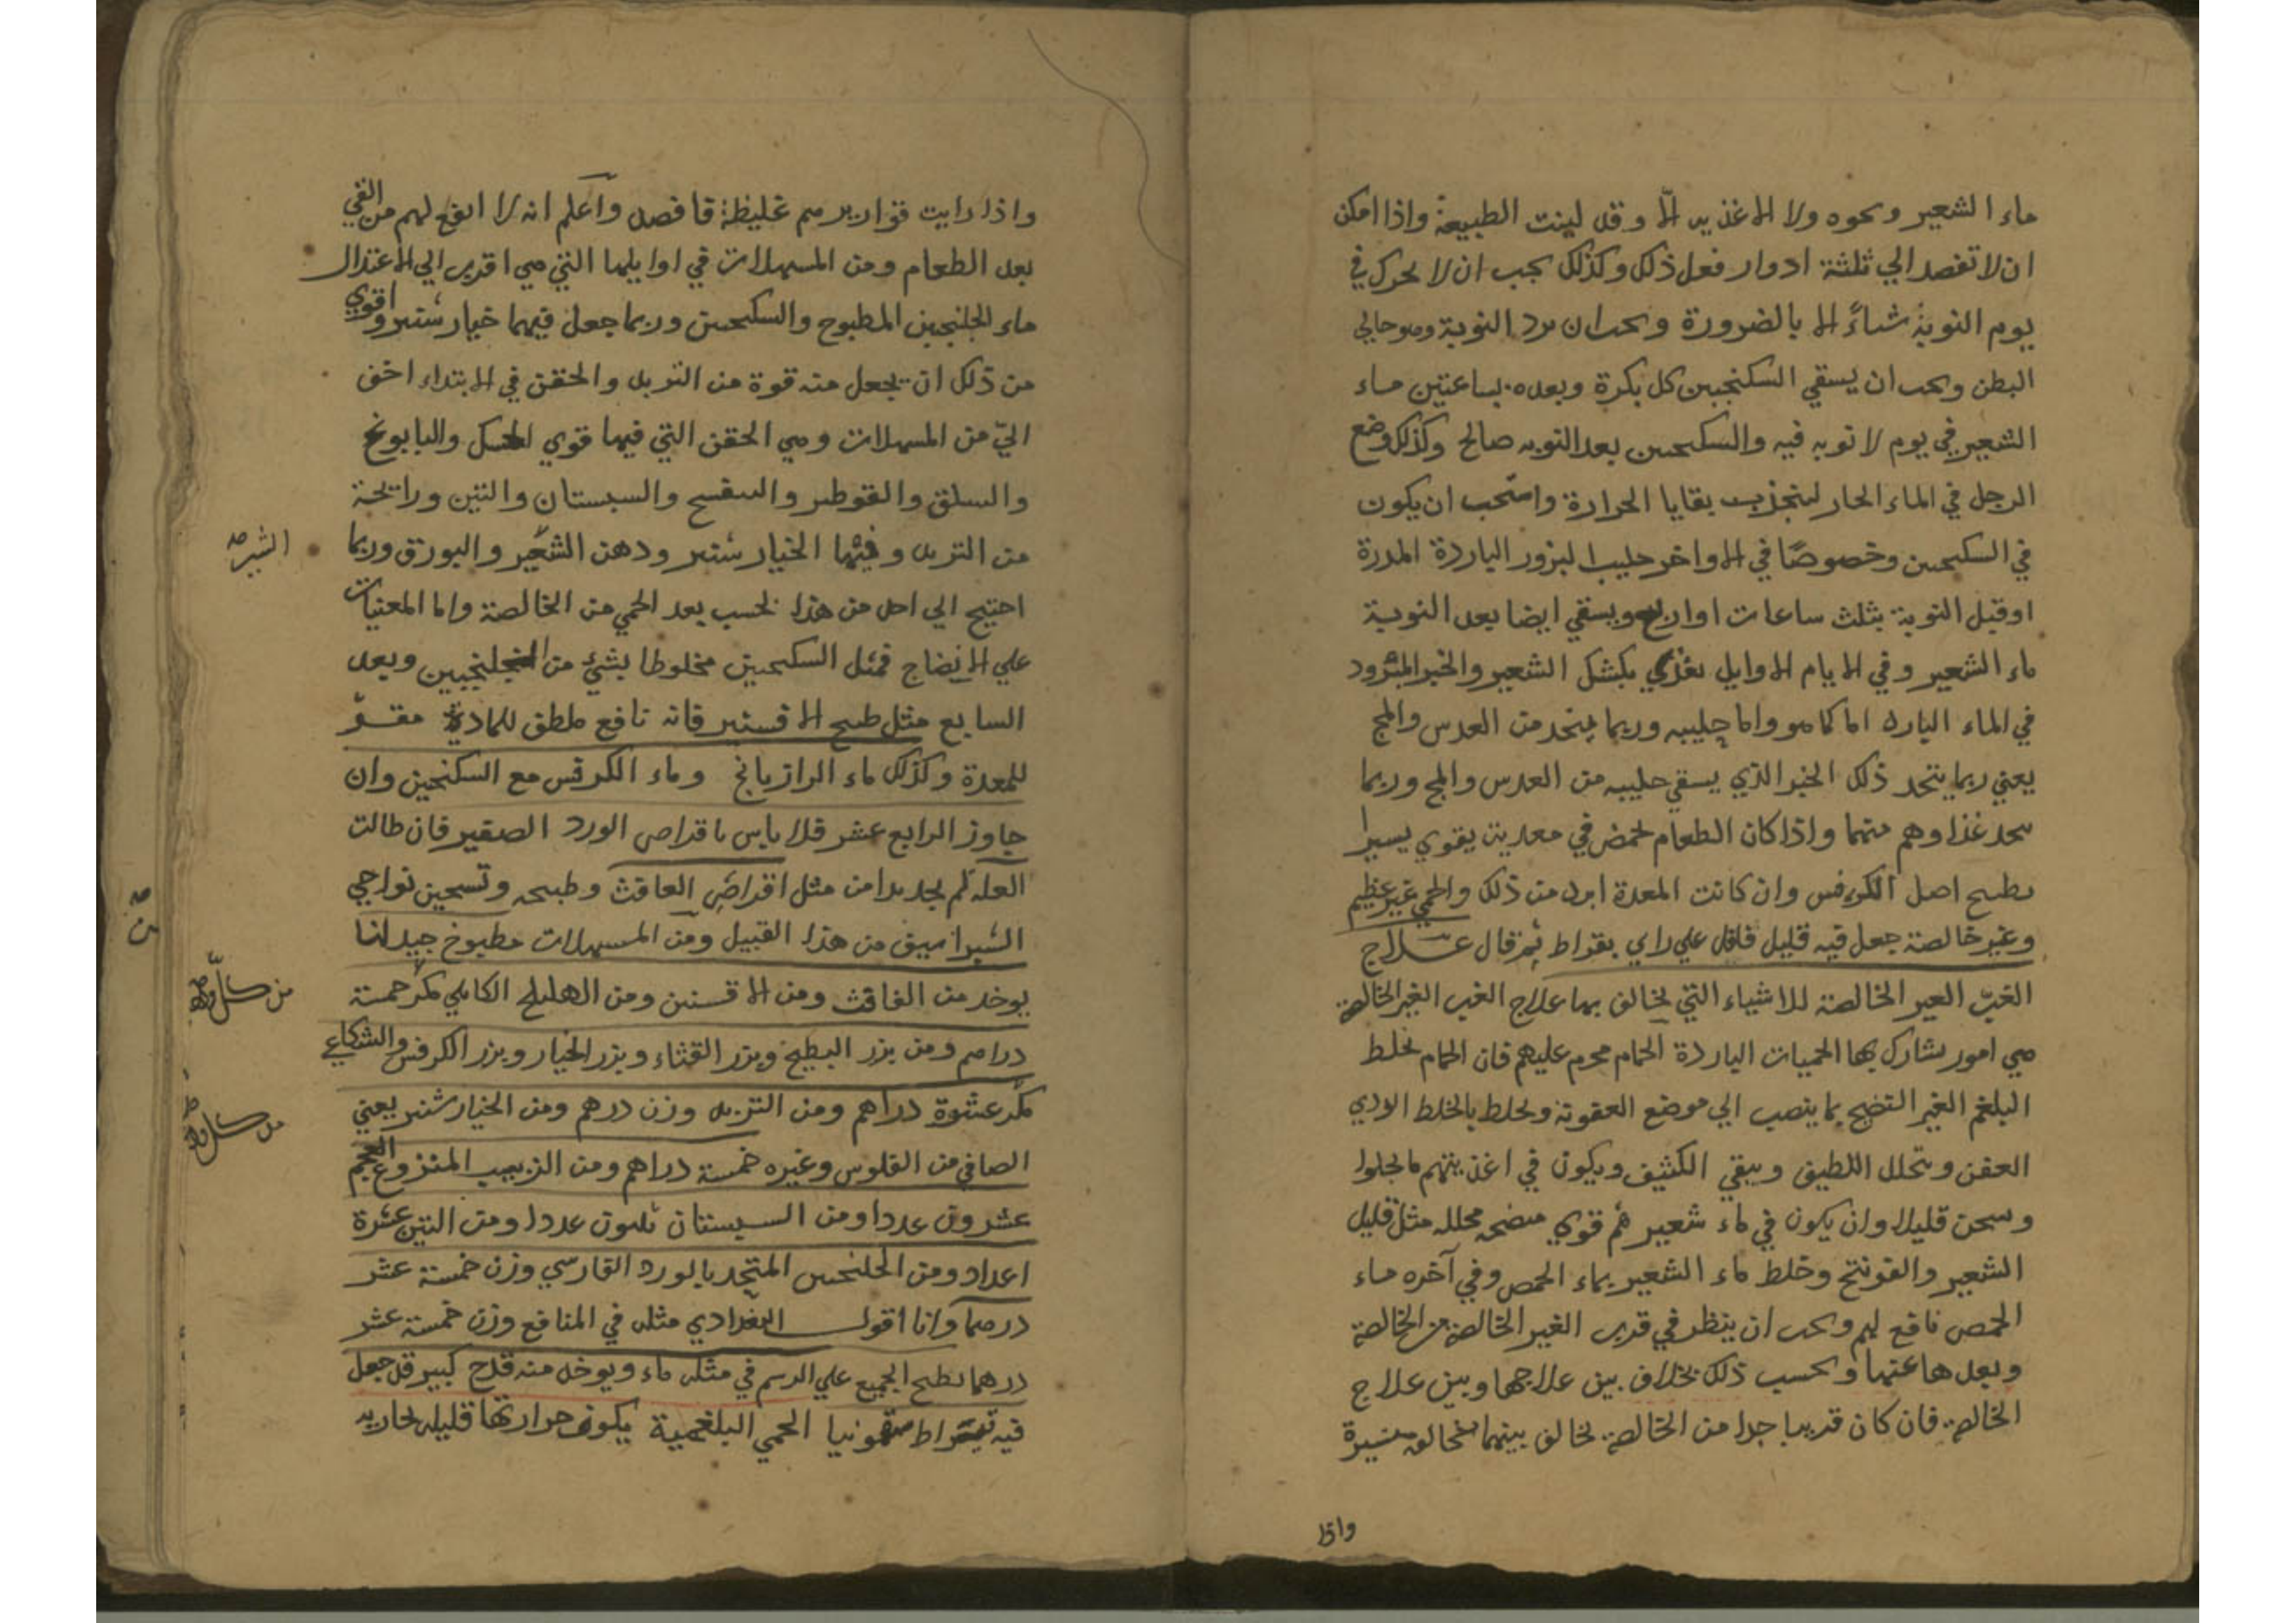 ماء الشعير ونحوه ولا الاغذية الا وقد لينت الطبيعة واذا امكن
ان لا تفصد الي ثلثة ادوار فعل ذلك وكذلك يجب ان لا يحرك في
يوم النوبة شياً الا بالضرورة ويجب ان يرد النوبة وهو خالي
البطن ويجب ان يسقي السكنجبين كل بكرة وبعده بساعتين ماء
الشعير في يوم لا نوبه فيه والسكنجبين بعد النوبه صالح وكذلك وضع
الرجل في الماء الحار لينجذب بقايا الحرارة واستحب ان يكون
في السكنجبين وخصوصًا في الاواخر حليب البزور الباردة المدرة
او قبل النوبة بثلث ساعات او اربع ويسقي ايضا بعد النوبة
ماء الشعير وفي الايام الاوايل يغذي بكشك الشعير والخبز المثرود
في الماء البارد اما كما هو واما حليبه وربما يتخذ من العدس والمج
يعني ربما يتخذ ذلك الخبز الذي يسقي حليبه من العدس والمج وربما
يتخذ غذاوهم منهما واذا كان الطعام يحمض في معديه يقوي يسيرا
بطبيخ اصل الكرفس وان كانت المعدة ابرد من ذلك والحمي غير عظيم
وغير خالصة جعل فيه قليل فلفل علي راي بقراط ثم قال علاج
الغبّ الغير الخالصة للاشياء التي يخالف بها علاج الغب الغير الخالصة
هي امور يشارك بها الحميات الباردة الحمام محرم عليهم فان الحمام يخلط
البلغم الغير النضيج بما ينصب الي موضع العفونة ويخلط بالخلط الردي
العفن ويتحلل اللطيف ويبقي الكثيف ويكون في اغذيتهم ما يجلوا
ويسخن قليلا وان يكون في ماء شعيرهم قوي منضجه محلله مثل قليل
الشعير والفوتنج وخلط ماء الشعير بماء الحمص وفي آخره ماء
الحمص نافع لهم ويجب ان ينظر في قرب الغير الخالصة من الخالصة
وبعدها عنها وبحسب ذلك يخالف بين علاجها وبين علاج
الخالصة فان كان قريبا جدا من الخالصة يخالف بينهما مخالفة يسيرة
واذا
واذا رايت قواريرهم غليظة فافصد واعلم انه لا انفع لهم من القي
بعد الطعام ومن المسهلات في اوايلها التي هي اقرب الي الاعتدال
ماء الجلنجبين المطبوخ والسكنجبين وربما جعل فيهما خيار شنبر واقوي
من ذلك ان يجعل منه قوة من التربد والحقن في الابتداء اخف
اليّ من المسهلات وهي الحقن التي فيها قوي الحسك والبابونج
والسلق والقرطم والبنفسج والسبستان والتين ورايحة
من التربد وفيها الخيار شنبر ودهن الشعير والبورق وربما
الشيرج
احتيج الي احد من هذا بحسب بعد الحمي من الخالصة واما المعينات
علي الانضاج فمثل السكنجبين مخلوطا بشئ من الجلنجبين وبعد
السابع مثل طبيخ الافسنتين فانه نافع ملطف للمادة مقوّ
للمعدة وكذلك ماء الرازيانج وماء الكرفس مع السكنجبين وان
جاوز الرابع عشر فلا باس باقراص الورد الصغير فان طالت
العله لم يجد بدا من مثل اقراص الغافث وطبيخه وتسخين نواحي
الشراسيف من هذا القبيل ومن المسهلات مطبوخ جيد لنا
يوخذ من الغافث ومن الافسنتين ومن الهليلج الكابلي مكر خمسة
دراهم ومن بزر البطيخ وبزر القثاء وبزر الخيار وبزر الكرفس والشكاعي
مكر عشرة دراهم ومن التربد وزن درهم ومن الخيار شنبر يعني
الصافي من الفلوس وغيره خمسة دراهم ومن الزبيب المنزوع العجم
عشرون عددا ومن السبستان ثلثون عددا ومن التين عشرة
اعداد ومن الجلنجبين المتخذ بالورد الفارسي وزن خمسة عشر
درهما وانا اقول البغدادي مثله في المنافع وزن خمسة عشر
درهما يطبخ الجميع علي الرسم في مثله ماء ويوخذ منه قدح كبير قد جعل
فيه قيراط سقمونيا الحمي البلغمية يكون حرارتها قليله بخاريه
من كل
من كل